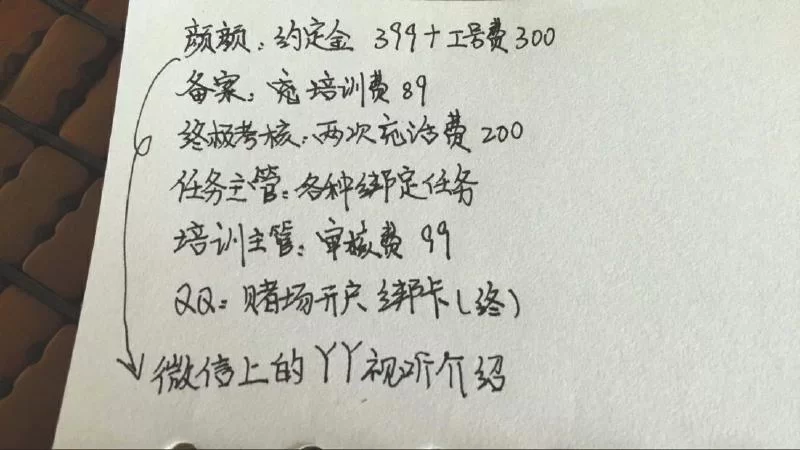 颜颜：约定金 399+工号费300
备案：充培训费89
终极考核：两次充话费200
任务主管：各种绑定任务
培训主管：审核费 99
QQ：赌场开户 绑卡(终)
微信上的YY视听介绍